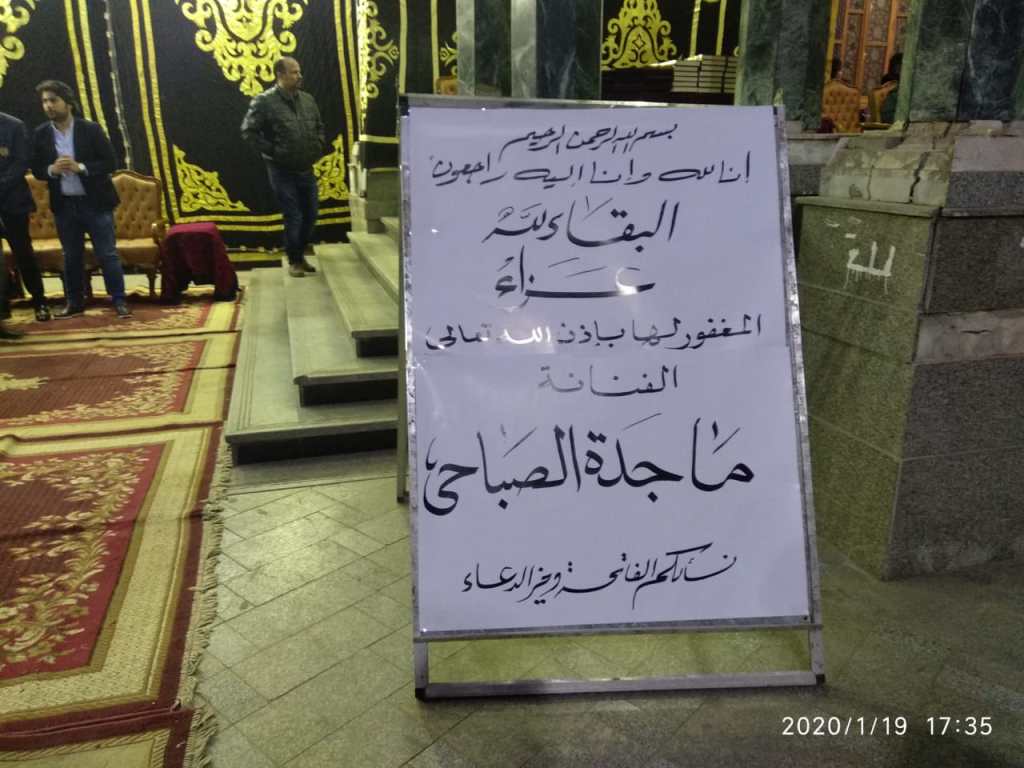 بسم الله الرحمن الرحيم
إنا لله وإنا إليه راجعون
البقاء لله
عزاء
المغفور لها بإذن الله تعالى
الفنانة
ماجدة الصباحى
نسألكم الفاتحة وخير الدعاء
لله
2020/1/19 17:35